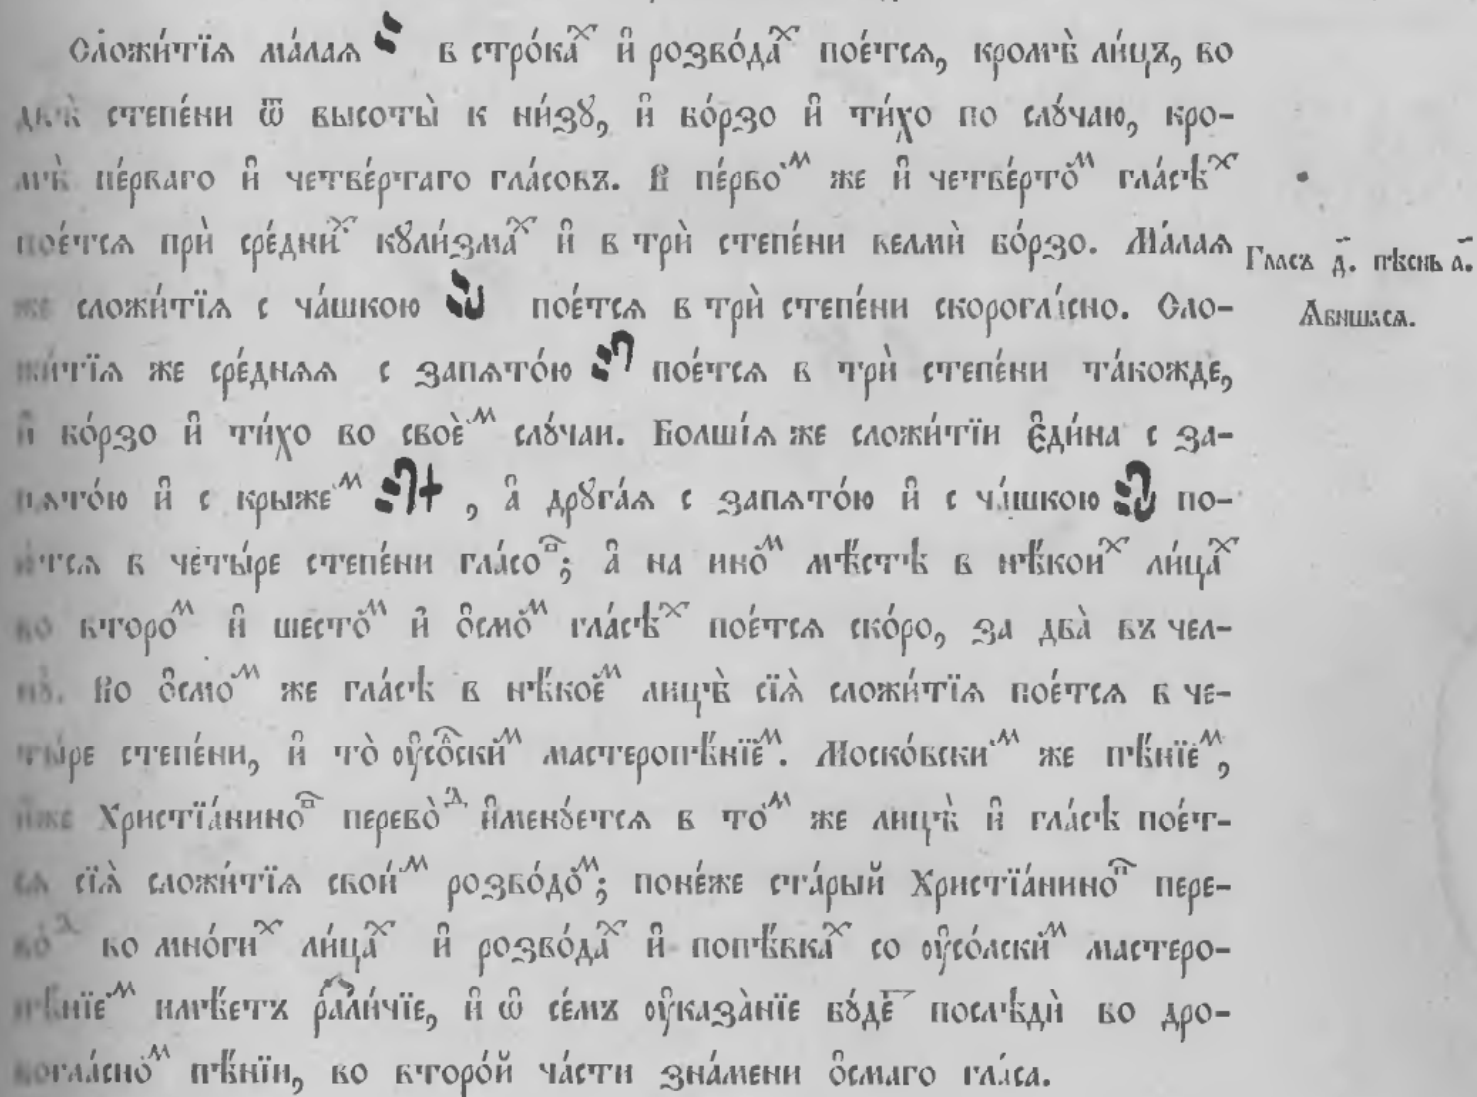 Сложи́тїѧ ма́лаѧ в стро́каⷯ и҆ розво́даⷯ пое́тсѧ, кромѣ̀ ли́цъ, во
двѣ̀ степе́ни ѿ высоты̀ к ни́зꙋ, и҆ бо́рзо и҆ ти́хо по слꙋ́чаю, кро-
мѣ̀ пе́рваго и҆ четве́ртаго гла́совъ. В пе́рвоⷨ же и҆ четве́ртоⷨ гла́сѣⷯ
пое́тсѧ прѝ сре́дниⷯ кꙋли́змаⷯ и҆ в трѝ степе́ни велмѝ бо́рзо. Ма́лаѧ
же сложи́тїѧ с ча́шкою пое́тсѧ в трѝ степе́ни скорогла́сно. Сло-
жи́тїѧ же сре́днѧѧ с запѧто́ю пое́тсѧ в трѝ степе́ни та́кожде,
и҆ бо́рзо и҆ ти́хо во своѐⷨ слꙋ́чаи. Болші́ѧ же сложи́тїи є҆ди́на с за-
пѧто́ю и҆ с крыжеⷨ, а҆ дрꙋга́ѧ с запѧто́ю и҆ с ча́шкою по-
е́тсѧ в четы́ре степе́ни гла́соⷡ; а҆ на ино́ⷨ мѣ́стѣ в нѣ́коиⷯ ли́цаⷯ
во второⷨ и҆ шесто́ⷨ и҆ о҆смо́ⷨ гла́сѣⷯ пое́тсѧ ско́ро, за два̀ въ чел-
нꙋ̀. Во о҆смо́ⷨ же гла́сѣ в нѣ́коеⷨ лицѣ̀ сїѧ̀ сложи́тїѧ пое́тсѧ в че-
ты́ре степе́ни, и҆ то̀ ᲂу҆со́ⷧскиⷨ мастеропѣ́нїеⷨ. Моско́вскиⷨ же пѣ́нїеⷨ,
и҆же Христїа́ниноⷡ перево̀ⷣ и҆менꙋ́етсѧ в тоⷨ же лицѣ̀ и҆ гла́сѣ пое́т-
сѧ сїѧ̀ сложи́тїѧ свои́ⷨ розво́доⷨ; поне́же ста́рый Христїа́ниноⷡ пере-
во́ⷣ во мно́гиⷯ ли́цаⷯ и҆ розво́даⷯ и҆ попѣ́вкаⷯ со ᲂу҆со́лскиⷨ мастеро-
пѣ́нїеⷨ имѣ́етъ ра́ꙁли́чїе, и҆ ѡ҆ се́мъ ᲂу҆каза̀нїе бꙋ́деⷮ послѣдѝ во дро-
богла́сноⷨ пѣ́нїи, во второ́й ча́сти зна́мени о҆смаго гла́са.
Гласъ д҃. пѣснь а҃.
Ꙗвишасѧ.